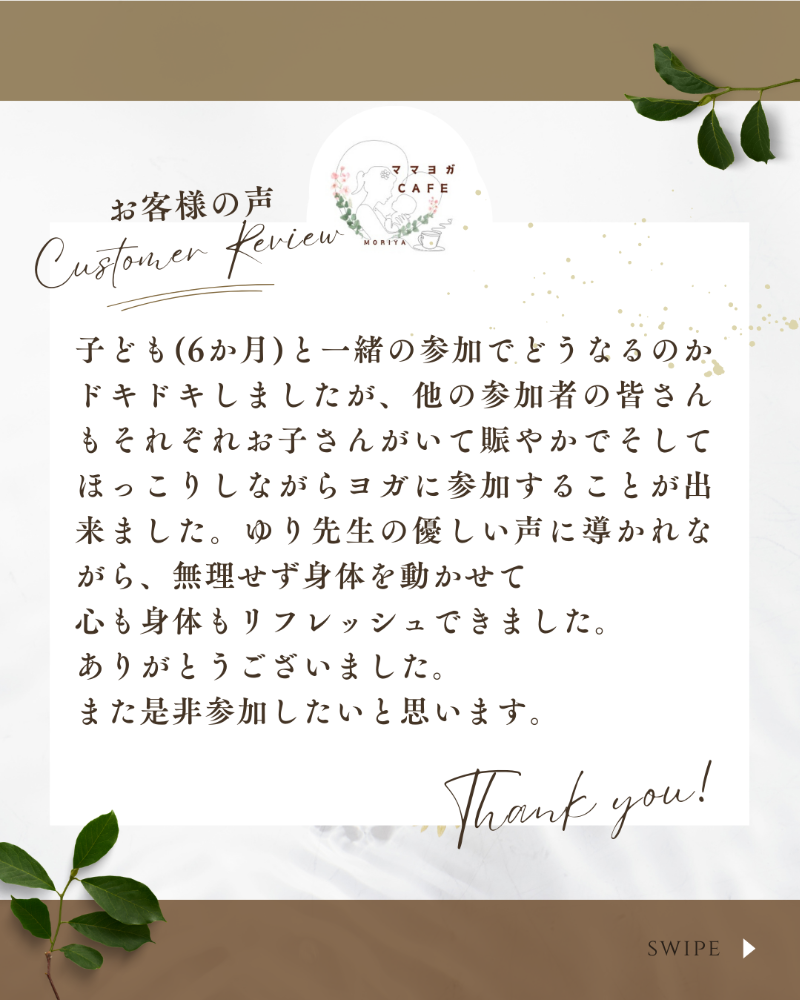 ママヨガ
CAFE
MORIYA
お客様の声
Customer Review
子ども(6か月)と一緒の参加でどうなるのか
ドキドキしましたが、他の参加者の皆さん
もそれぞれお子さんがいて賑やかでそして
ほっこりしながらヨガに参加することが出
来ました。ゆり先生の優しい声に導かれな
がら、無理せず身体を動かせて
心も身体もリフレッシュできました。
ありがとうございました。
また是非参加したいと思います。
Thank you!
SWIPE